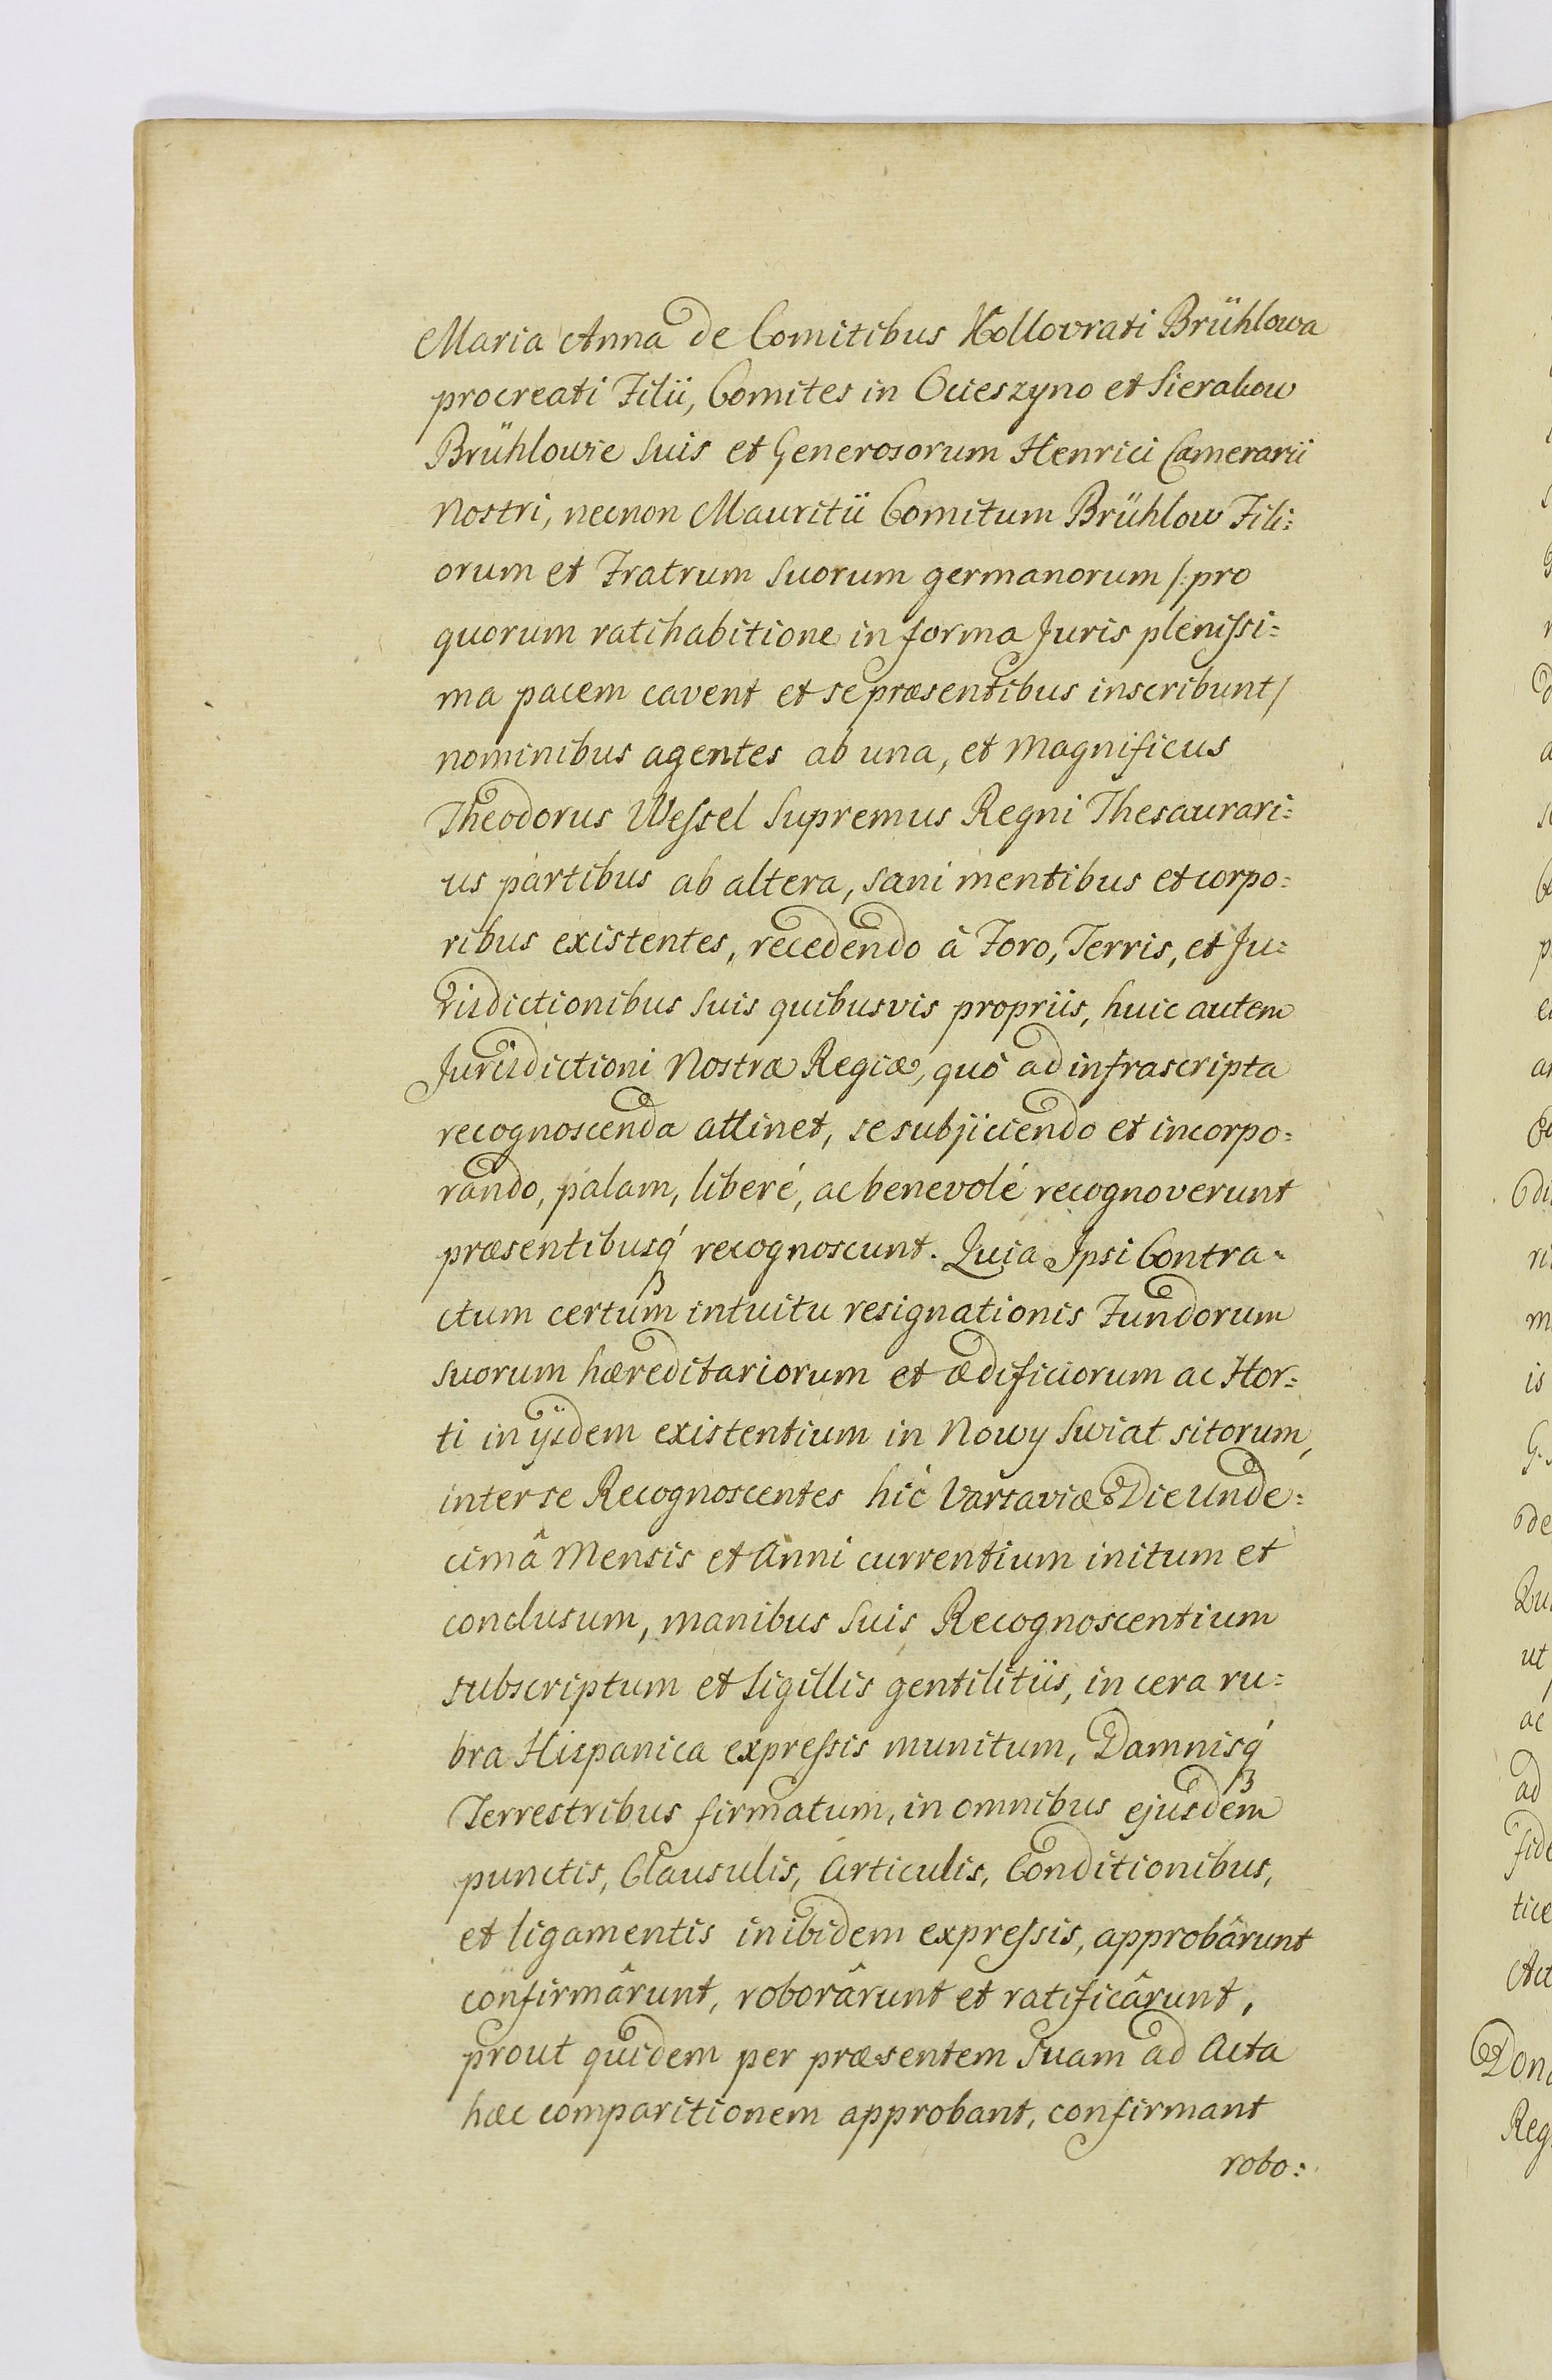 Maria Anna de Comitibus Kollovrati Brühlowa
procreati Filii, Comites in Ocieszyno et Sierakow
Brühlowie Suis et Generosorum Henrici Camerarii
Nostri, necnon Mauritii Comitum Brühlow Fili=
orum et Fratrum Suorum germanorum /: pro
quorum ratihabitione in forma Juris plenissi=
ma pacem cavent et se præsentibus inscribunt /
nominibus agentes ab una, et Magnificus
Theodorus Wessel Supremus Regni Thesaurari=
us partibus ab altera, sani mentibus et corpo=
ribus existentes, recedendo â Foro, Terris, et Ju=
risdictionibus Suis quibusvis propriis, huic autem
Jurisdictioni Nostræ Regiæ, quó ad infrascripta
recognoscenda attinet, se subjiciendo et incorpo=
rando, palam, liberé, ac benevolé recognoverunt
præsentibusq́ recognoscunt. Quia Ipsi Contra=
ctum certum intuitu resignationis Fundorum
suorum hæreditariorum et ædificiorum ac Hor=
ti in ÿsdem existentium in Nowy Swiat sitorum,
inter se Recognoscentes hic Varsaviæ Die Unde=
cimâ Mensis et Anni currentium initum et
conclusum, manibus Suis Recognoscentium
subscriptum et Sigillis gentilitiis, in cera ru=
bra Hispanica expressis munitum, Damnisq́
Terrestribus firmatum, in omnibus ejusdem
punctis, Clausulis, Articulis, Conditionibus,
et ligamentis inibidem expressis, approbârunt
confirmârunt, roborârunt et ratificârunt,
prout quidem per præsentem Suam ad Acta
hæc comparitionem approbant, confirmant
robo=